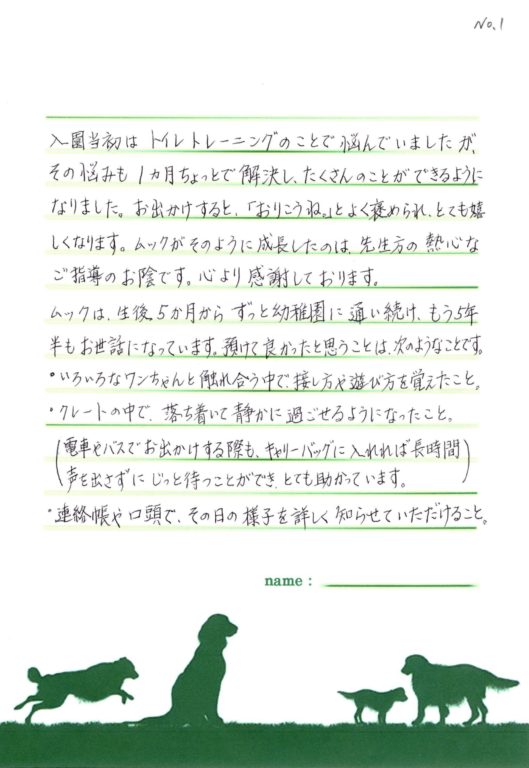 No.1
入園当初は トイレトレーニングのことで 悩んでいましたが、
その悩みも 1ヵ月ちょっとで解決し、たくさんのことができるように
なりました。お出かけすると、「おりこうね。」とよく褒められ、とても嬉
しくなります。ムックがそのように成長したのは、先生方の熱心な
ご指導のお陰です。心より感謝しております。
ムックは、生後5か月から ずっと幼稚園に通い続け、もう5年
半もお世話になっています。預けて良かったと思うことは、次のようなことです。
・いろいろなワンちゃんと触れ合う中で、接し方や遊び方を覚えたこと。
・クレートの中で、落ち着いて静かに過ごせるようになったこと。
(電車やバスでお出かけする際も、キャリーバッグに入れれば長時間
声を出さずにじっと待つことができ、とても助かっています。)
・連絡帳や口頭で、その日の様子を詳しく知らせていただけること。
name :